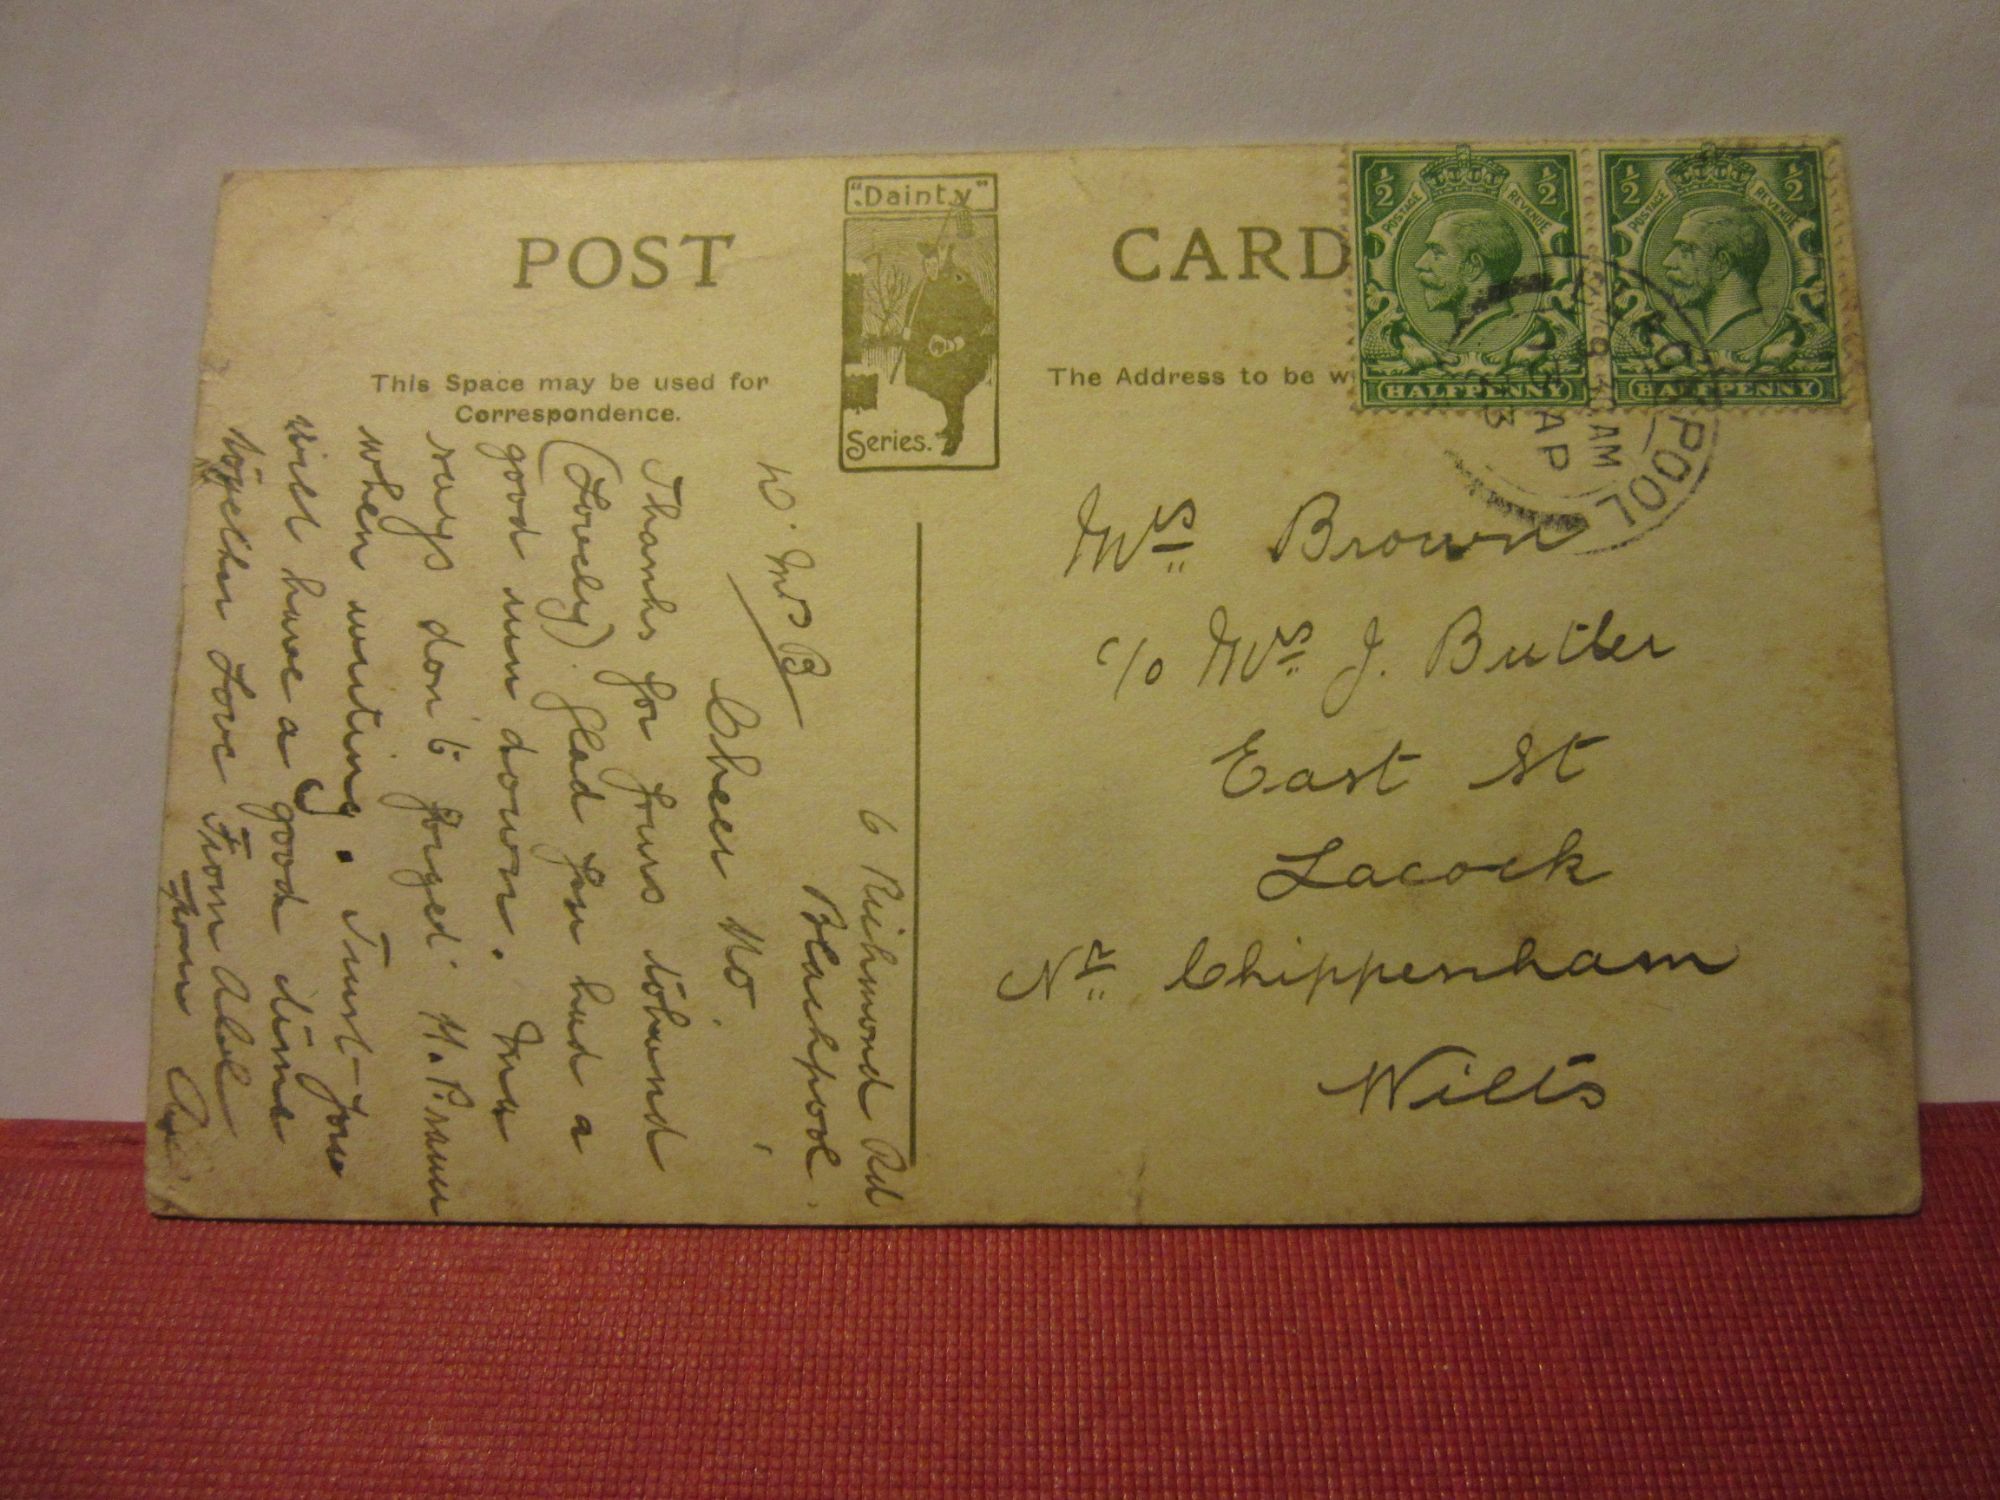 POST CARD
"Dainty"
Series.
This Space may be used for
Correspondence.
The Address to be w
½ ½
POSTAGE REVENUE
HALFPENNY
½ ½
POSTAGE REVENUE
HALFPENNY
POOL
AM
AP
23
6 Richmond Rd
Blackpool.
D. Mrs B
Cheer Ho.
Thanks for yours to hand
(Lovely). Glad you had a
good run down.
says don't forget H. Prawn
when writing. Trust you
will have a good time
together Love From
From
Mrs Brown
c/o Mrs J. Butler
East St
Lacock
Nr Chippenham
Wilts